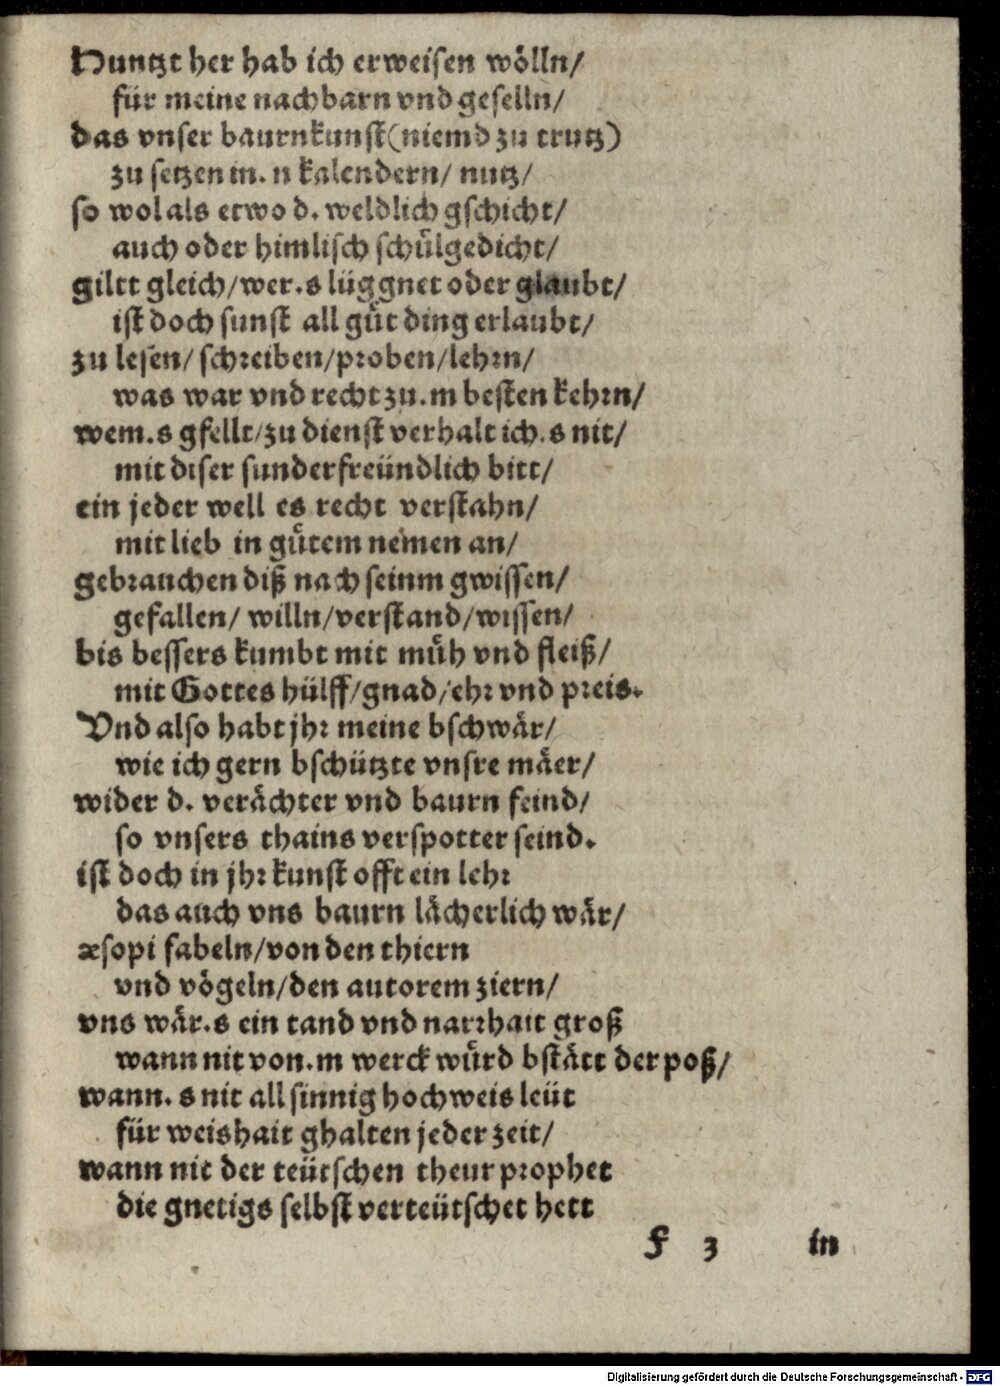 Huntzt her hab ich erweisen wölln/
für meine nachbarn vnd geselln/
das vnser baurnkunst(niemd zu trutz)
zu setzen in. n kalendern/ nutz/
so wol als etwo d. weldlich gschicht/
auch oder himlisch schülgedicht/
giltt gleich/wer.s lüggnet oder glaubt/
ist doch sunst all güt ding erlaubt/
zu lesen/ schreiben/proben/lehrn/
was war vnd recht zu.m besten kehrn/
wem.s gfellt/zu dienst verhalt ich.s nit/
mit diser sunderfreündlich bitt/
ein jeder well es recht verstahn/
mit lieb in gütem nemen an/
gebrauchen diß nach seinm gwissen/
gefallen/ willn/verstand/wissen/
bis bessers kumbt mit müh vnd fleiß/
mit Gottes hülff/gnad/ehr vnd preis.
Vnd also habt jhr meine bschwär/
wie ich gern bschützte vnsre mäer/
wider d. verächter vnd baurn feind/
so vnsers thains verspotter seind.
ist doch in jhr kunst offt ein lehr
das auch vns baurn lächerlich wär/
æsopi fabeln/von den thiern
vnd vögeln/den autorem ziern/
vns wär.s ein tand vnd narrhait groß
wann nit von.m werck würd bstätt der poß/
wann. s nit all sinnig hochweis leüt
für weishait ghalten jeder zeit/
wann nit der teütschen theur prophet
die gnetigs selbst verteütschet hett
f 3 in
Digitalisierung gefördert durch die Deutsche Forschungsgemeinschaft - DFG